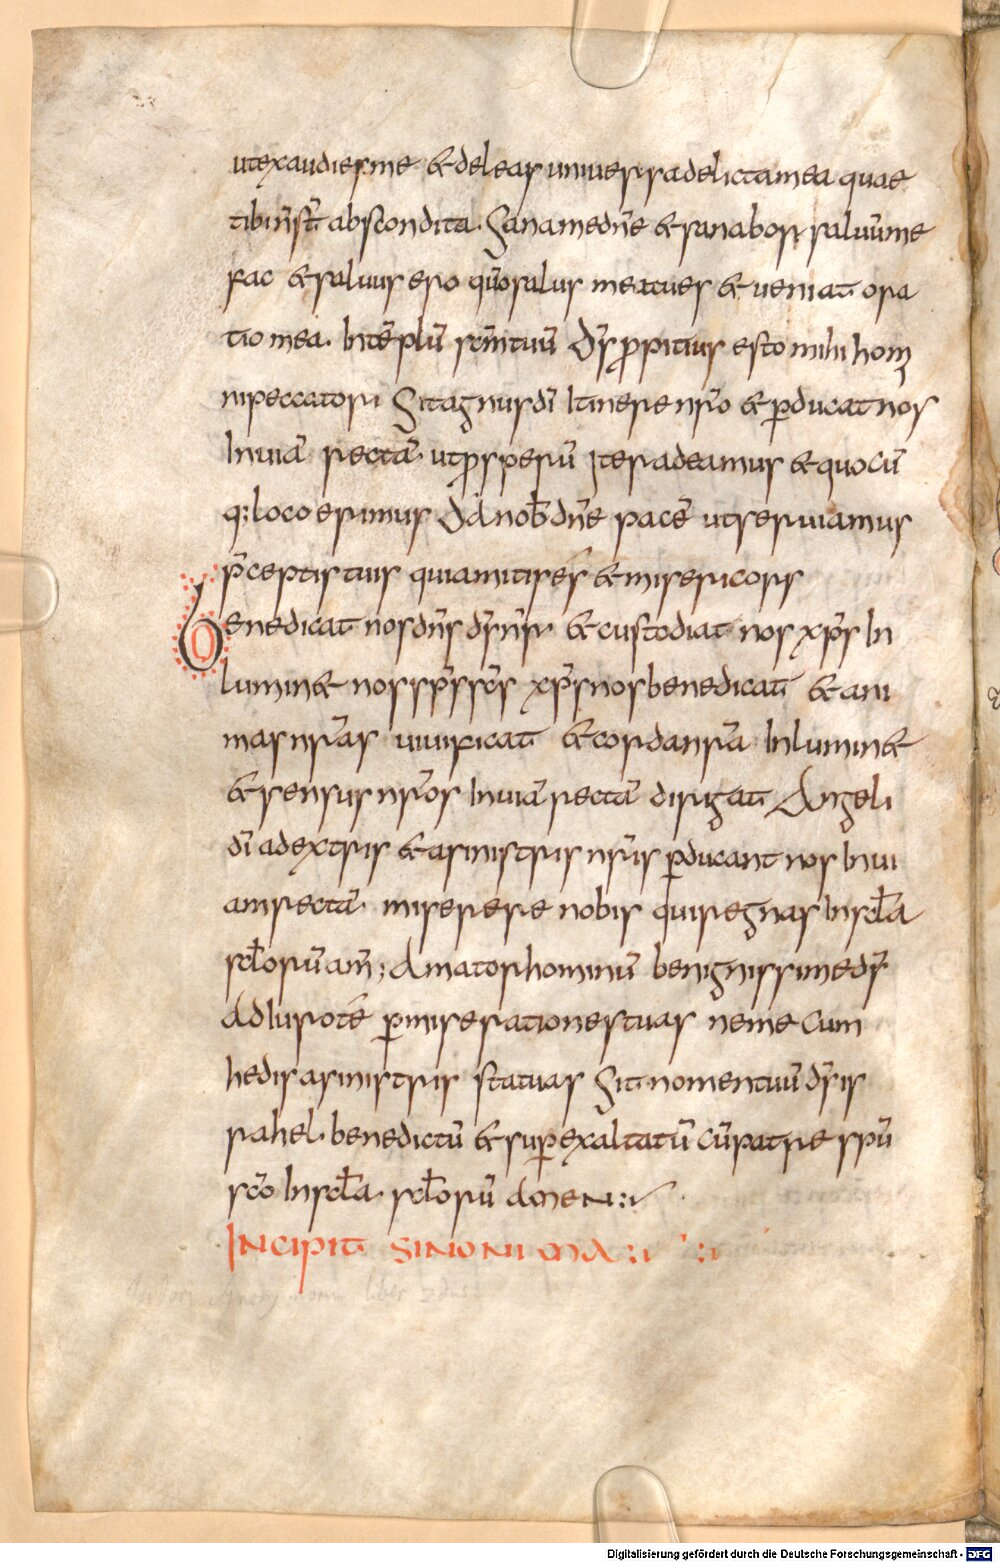 utexaudies me &deleas uniuersa delicta mea quae
tibi nr̄ st̄ abscondita. Sana me dn̄e & sanabor saluūme
fac & saluus ero qm̄ salus mea tu es & ueniat ora
tio mea. In tēplū sc̄m tuū Ds̄ ꝓpitius esto mihi hom
ni peccatori Sit agnus dī Itinere nr̄o & ꝑducat nos
In uiā rectā ut ꝓsperū Iter adeamus & quo cū
q; loco erimus Da nob̄ dn̄e pacē ut seruiamus
p̄ceptis tuis quia mitis és & misericors
Benedicat nos dn̄s ds̄ nr̄ & custodiat nos xp̄s In
lumin& nos sp̄s sc̄s xp̄s nos benedicat & ani
mas nr̄as uiuificat & corda nr̄a Inlumin&
& sensus nr̄os In uiā rectā dirigat Angeli
dī a dextris & a sinistris nr̄is ꝑducant nos In ui
am rectā miserere nobis qui regnas In scl̄a
scl̄orū am̄; Amator hominū benignissime ds̄
Ad lus rotē ꝑ miserationes tuas ne me cum
hedis a sinistris statuas Sit nomen tuū ds̄ is
rahel. benedictū & suꝑexaltatū cū patre spū
sc̄o In scl̄a scl̄orū amen:
INCIPIT SINONIMA: